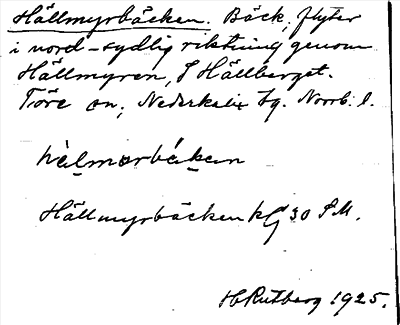 Hällmyrbäcken. Bäck, flyter
i nord-sydlig riktning genom
Hällmyren, S Hällberget.
Töre sn, Nederkalix tg. Norrb. l.
hälmorbäkan
Hällmyrbäcken kg 30 S.M.
H Rutberg 1925.